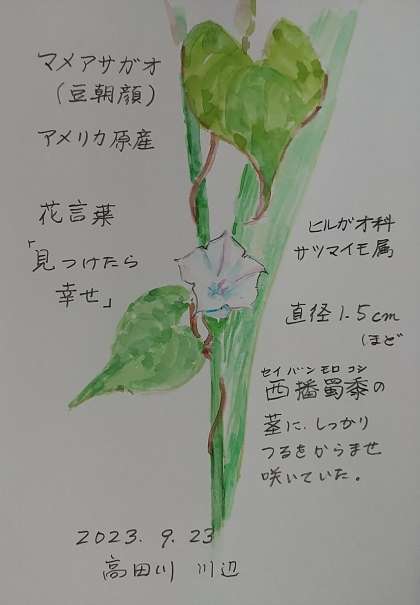 マメアサガオ
(豆朝顔)
アメリカ原産
花言葉
「見つけたら
幸せ」
ヒルガオ科
サツマイモ属
直径1.5cm
ほど
セイバンモロコシ
西播蜀黍の
茎に、しっかり
つるをからませ
咲いていた。
2023.9.23
高田川 川辺